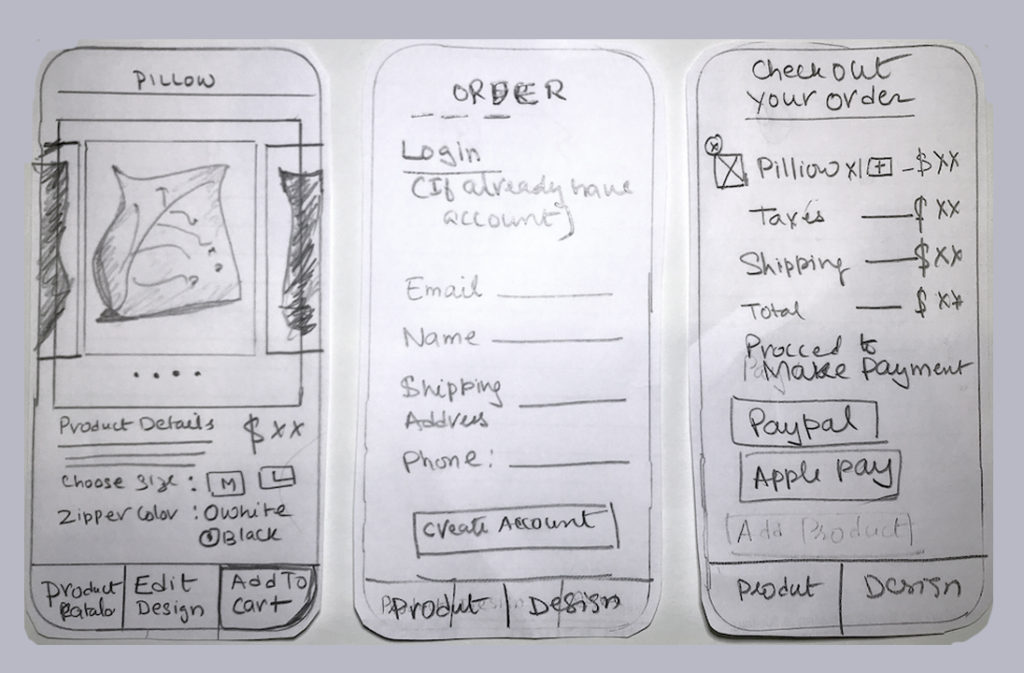 PILLOW
Product Details $xx
Choose Size : M L
Zipper Color : White
Black
Product
Edit
Design
Add To
Cart
ORDER
Login
(If already have
account)
Email
Name
Shipping
Address
Phone:
Create Account
Produt
Design
Check out
your order
x Pilliow x1 + - $xx
Taxes $xx
Shipping $xx
Total $xx
Procced to
Make payment
Paypal
Apple pay
Add Product
Produt
Design